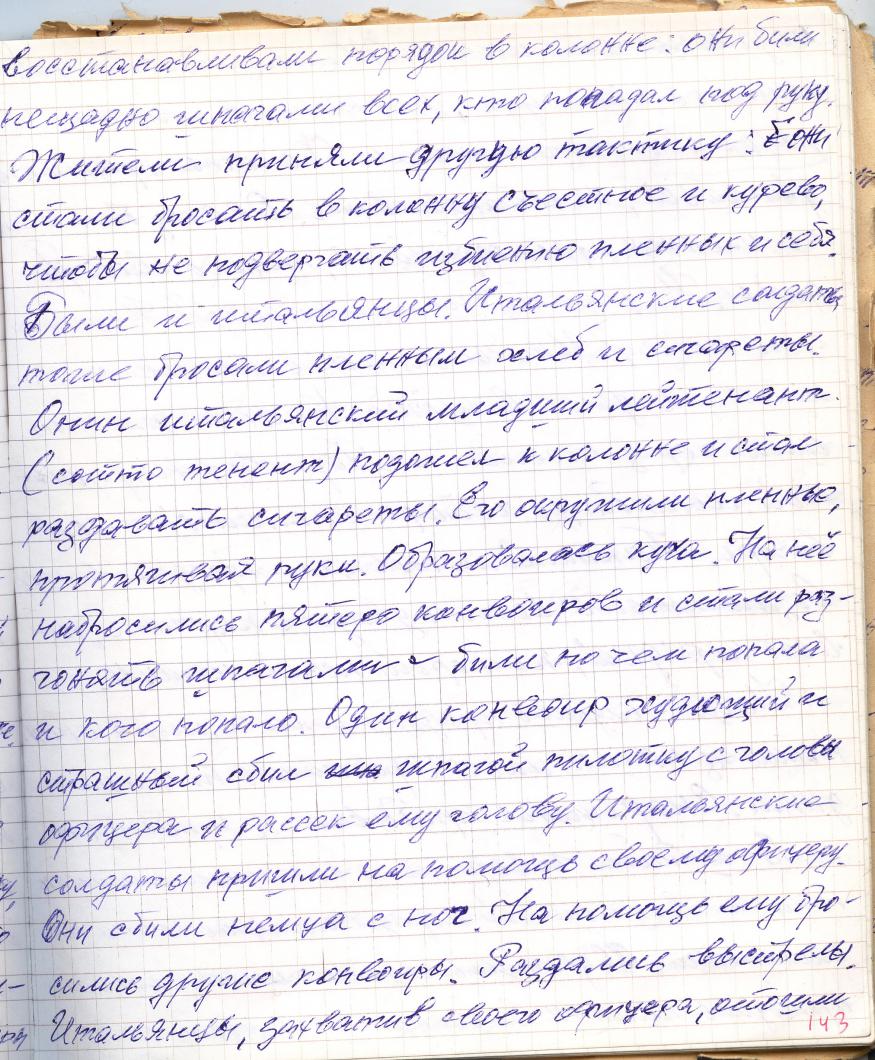 восстанавливали порядок в колонне: они били
нещадно шпагами всех, кто попадал под руку.
Жители приняли другую тактику: они
стали бросать в колонну съестное и курево,
чтобы не подвергать избиению пленных и себя.
Были и итальянцы. Итальянские солдаты
тоже бросали пленным хлеб и сигареты.
Онин итальянский младший лейтенант
(сотто тенент) подошел к колонне и стал
раздавать сигареты. Его окружили пленные,
протягивая руки. Образовалась куча. На неё
набросились пятеро конвоиров и стали раз-
гонять шпагами – били по чем попала
и кого попало. Один конвоир худющий и
страшный сбил шпагой пилотку с головы
офицера и рассек ему голову. Итальянские
солдаты пришли на помощь своему офицеру.
Они сбили немца с ног. На помощь ему бро-
сились другие конвоиры. Раздались выстрелы.
Итальянцы, захватив своего офицера, отошли
143